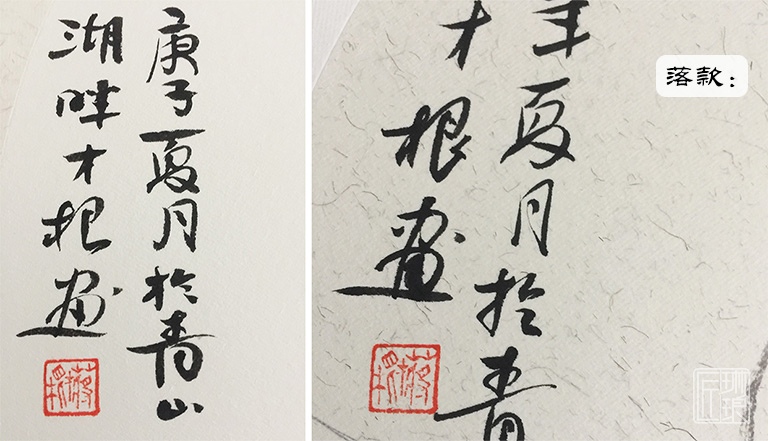 庚子夏月於青山
湖畔才根画
年夏月於青
才根画
落款：